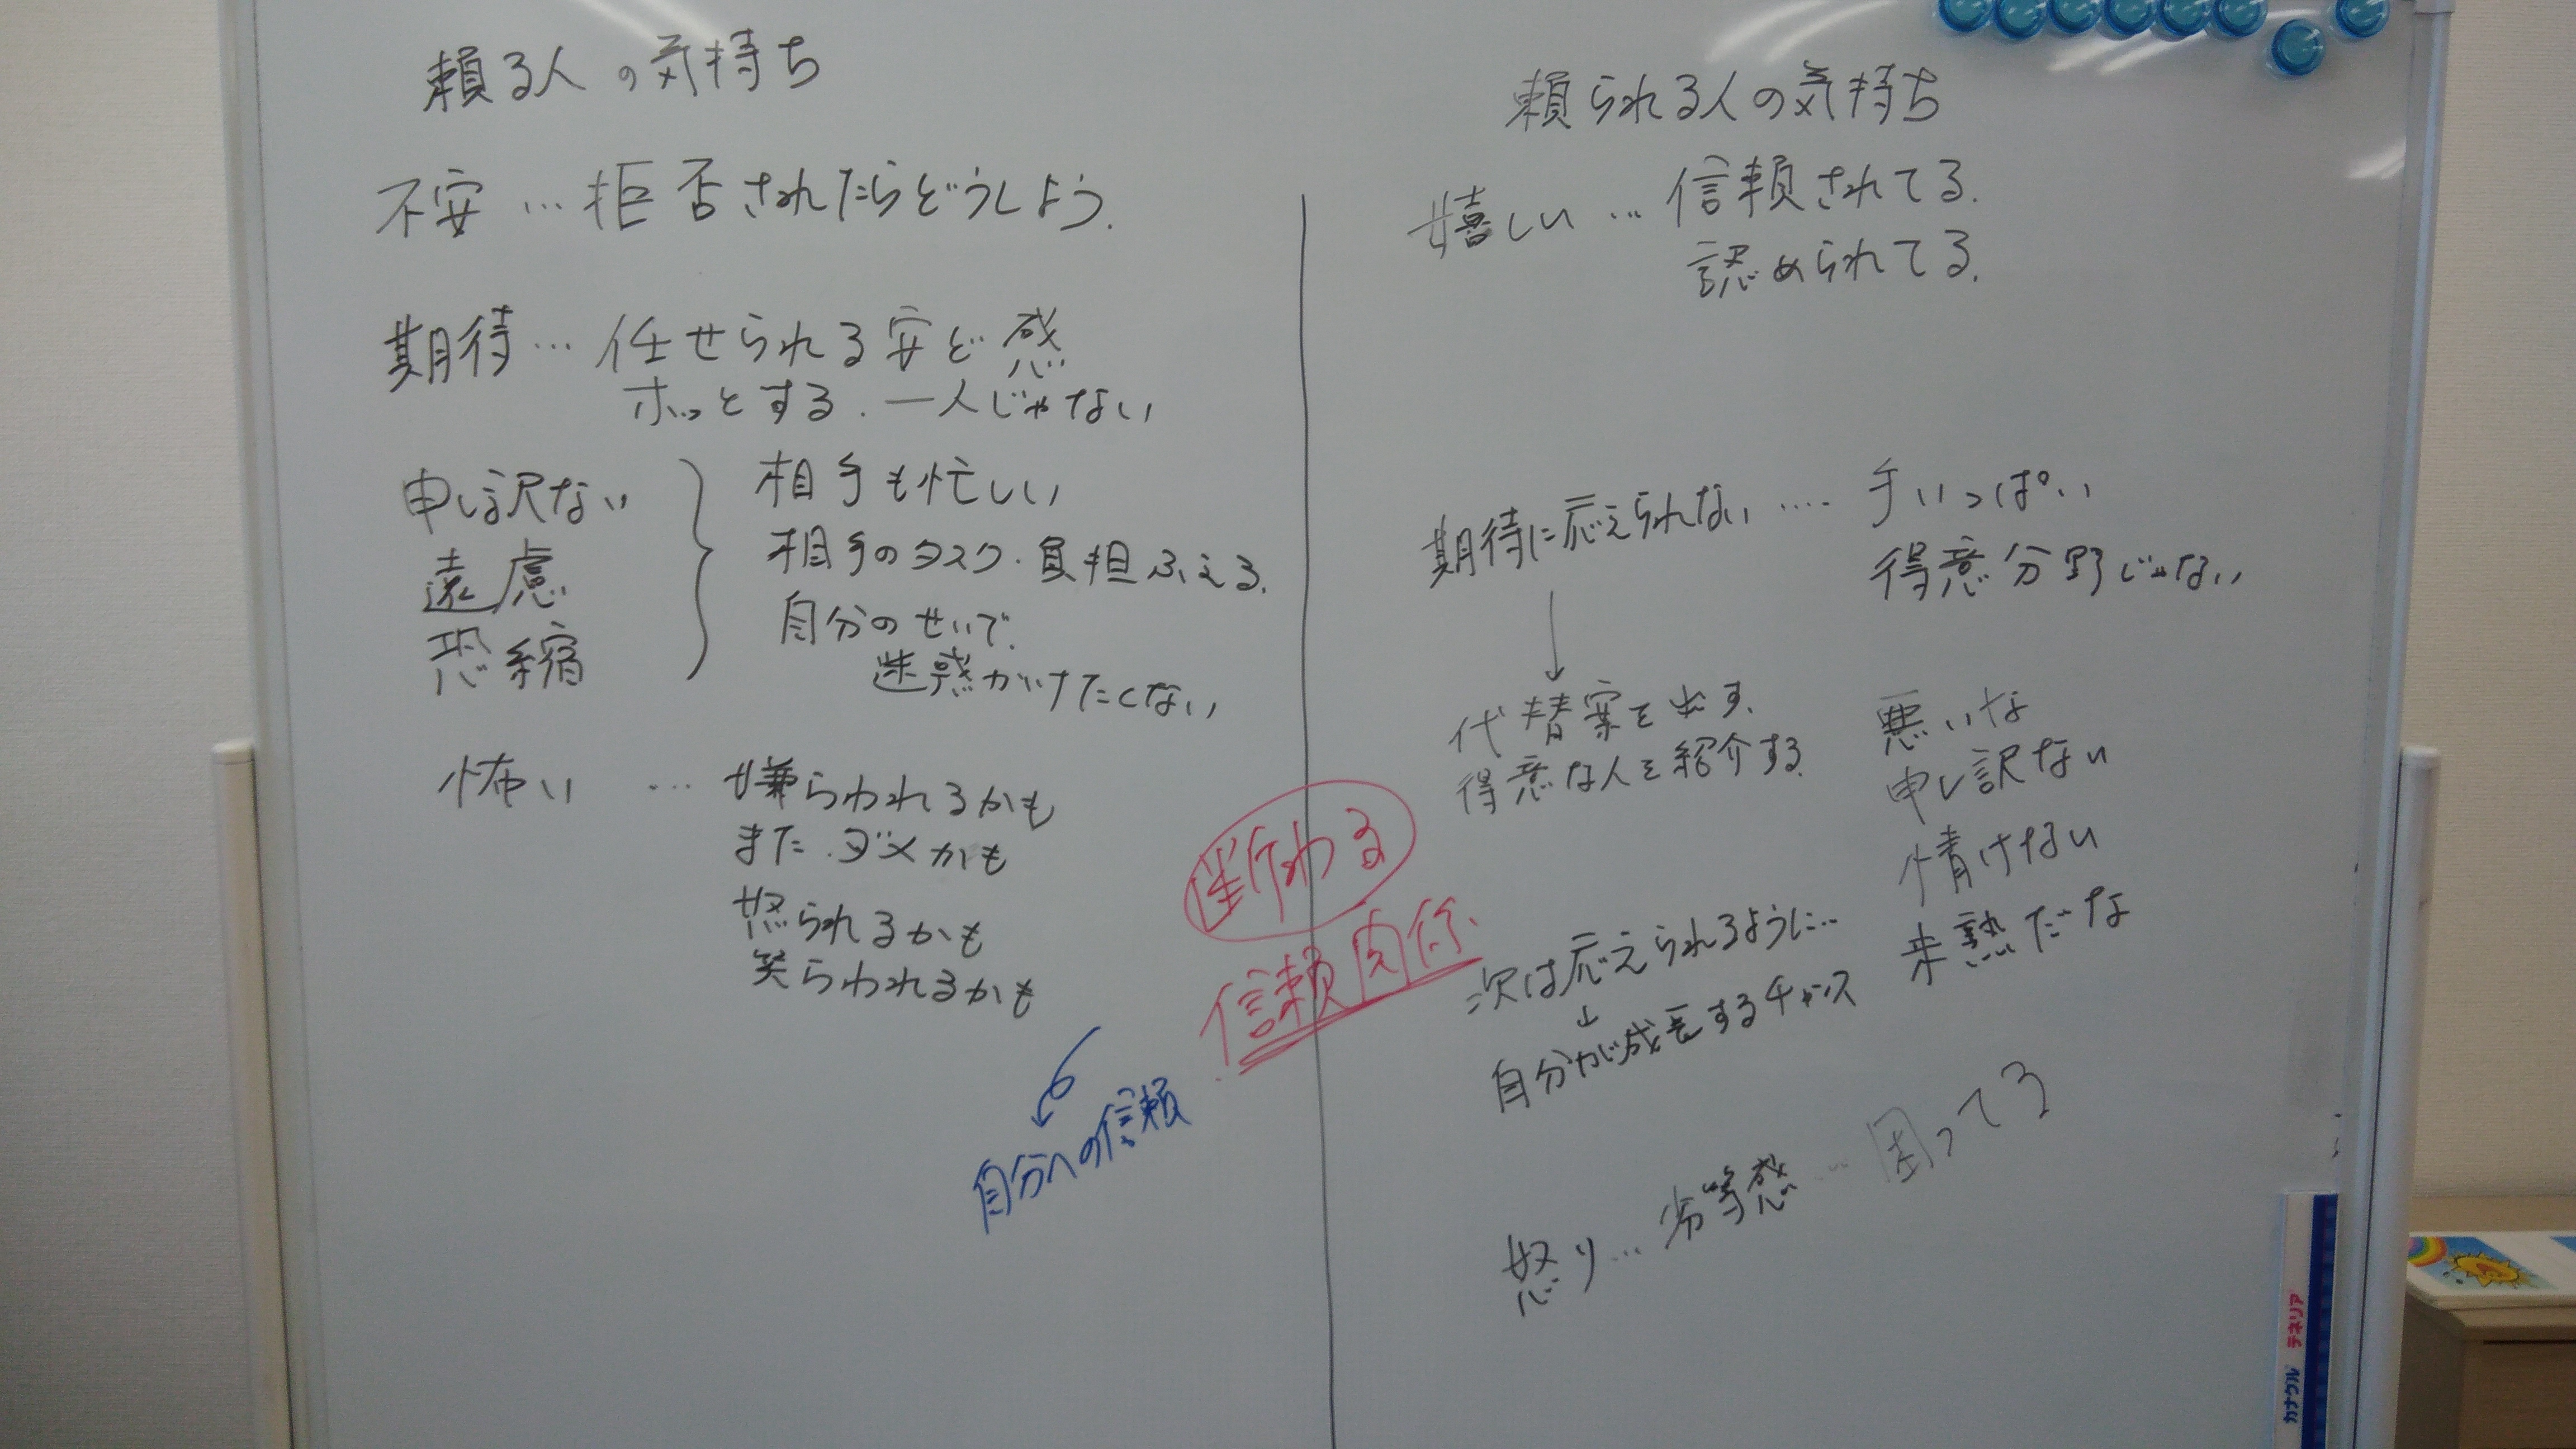 頼る人の気持ち
不安…拒否されたらどうしよう.
期待…任せられる安ど感
ホッとする.一人じゃない
申し訳ない
遠慮
恐縮
相手も忙しい
相手のタスク・負担ふえる.
自分のせいで.
迷惑かけたくない
怖い …嫌らわれるかも
また.ダメかも
怒られるかも
笑らわれるかも
断わる
信頼関係
自分への信頼
頼られる人の気持ち
嬉しい…信頼されてる.
認められてる.
期待に応えられない‥‥手いっぱい
得意分野じゃない
↓
代替案を出す.
得意な人を紹介する.
悪いな
申し訳ない
情けない
未熟だな
次は応えられるように…
↓
自分が成長するチャンス
怒り…劣等感…困ってる